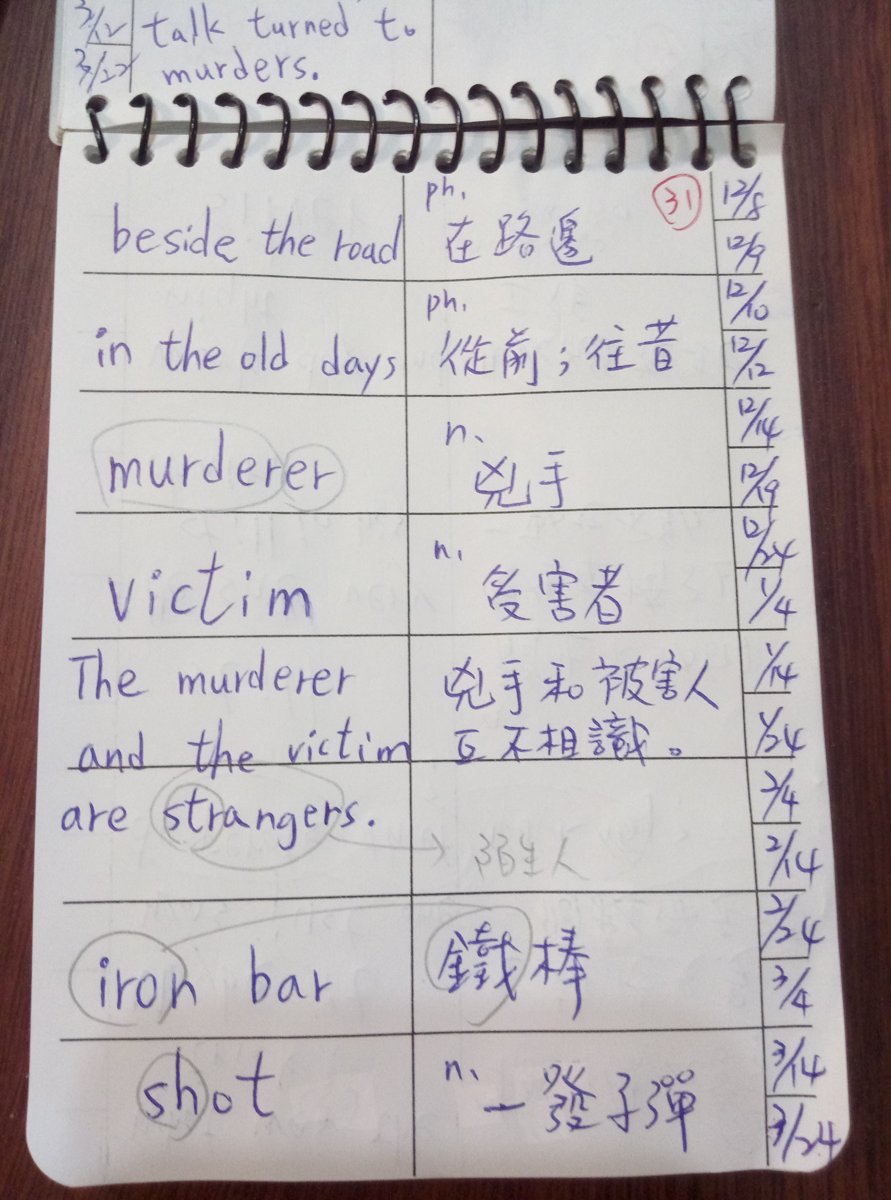 3/12
3/22
talk turned to
murders.
ph.
31
beside the road
在路邊
12/8
12/9
ph.
in the old days
從前；往昔
12/10
12/12
n.
murderer
兇手
12/14
12/19
n.
victim
受害者
12/24
1/4
The murderer
and the victim
are strangers.
兇手和被害人
互不相識。
陌生人
1/14
1/24
2/4
2/14
iron bar
鐵棒
2/24
3/4
n.
shot
一發子彈
3/14
3/24